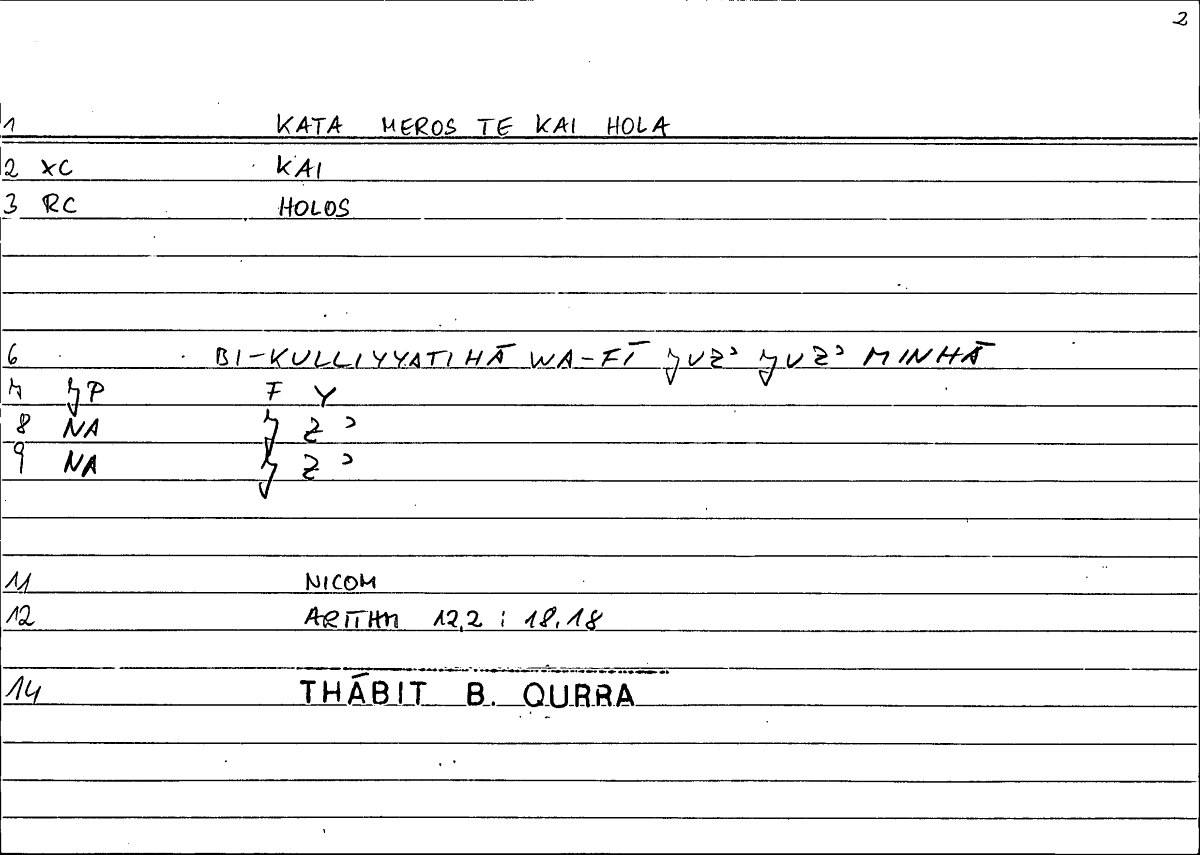 2
1 KATA MEROS TE KAI HOLA
2 XC KAI
3 RC HOLOS
6 BI-KULLIYYATIHĀ WA-FĪ ǦUZʾ ǦUZʾ MINHĀ
7 ǦP F Y
8 NA Ǧ Z ʾ
9 NA Ǧ Z ʾ
11 NICOM
12 ARITHM 12,2 : 18,18
14 THĀBIT B. QURRA